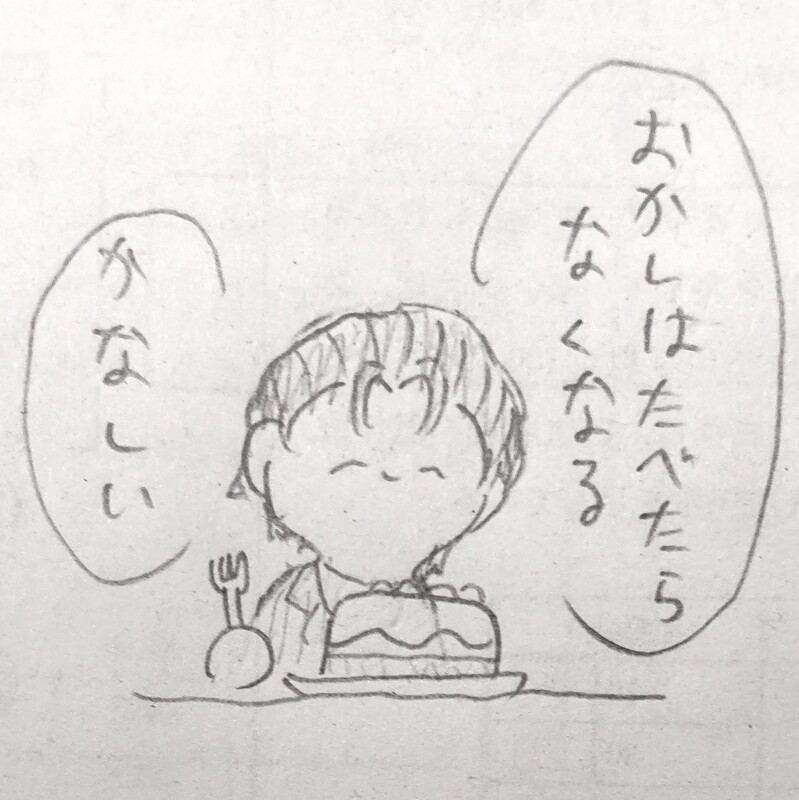 おかしはたべたら
なくなる
かなしい